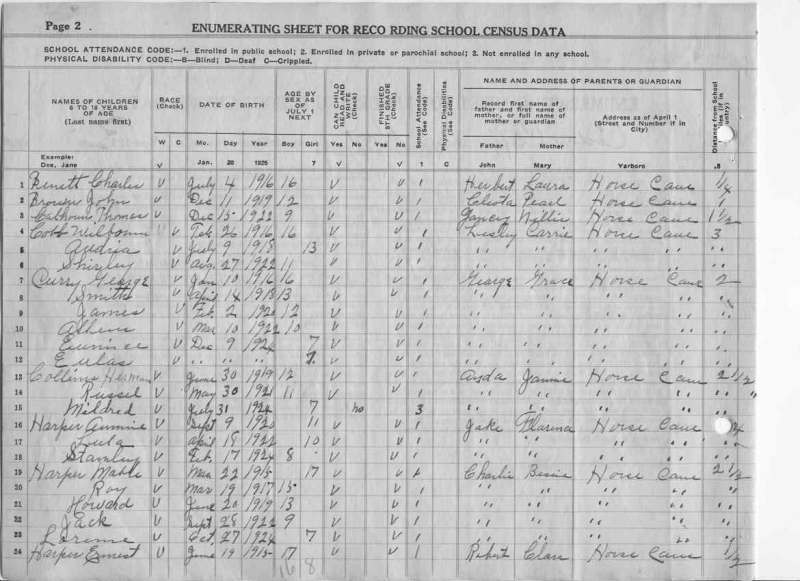 Page 2 .
ENUMERATING SHEET FOR RECO RDING SCHOOL CENSUS DATA
SCHOOL ATTENDANCE CODE:—1. Enrolled in public school; 2. Enrolled in private or parochial school; 3. Not enrolled in any school.
PHYSICAL DISABILITY CODE:—B—Blind; D—Deaf C—Crippled.
NAMES OF CHILDREN 6 TO 18 YEARS OF AGE (Last name first) RACE (Check) DATE OF BIRTH AGE BY SEX AS OF JULY 1 NEXT CAN CHILD READ AND WRITE (Check) FINISHED 8TH GRADE (Check) School Attendance (See Code) Physical Disabilities (See Code) NAME AND ADDRESS OF PARENTS OR GUARDIAN Distance from School
Record first name of father and first name of mother, or full name of mother or guardian Address as of April 1 (Street and Number if in City)
W C Mo. Day Year Boy Girl Yes No Yes No 1 C Father Mother
Example: Doe, Jane V Jan. 20 1925 7 V V 1 John Mary Yarboro .8
1 Charlie V July 4 1916 16 V V 1 Herbert Laura Horse Cave 1/4
2 Brown John V Dec 11 1919 12 V V 1 Pearl Horse Cave 1
3 Calhoun, Thomas V Dec 15 1922 9 V V 1 Horse Cave 1 1/2
4 Cobb V Feb 26 1916 16 V V 1 Lesley Carrie Horse Cave 3
5 V July 9 1918 13 V V 1 " " " " "
6 Shirley V Aug 27 1922 11 V V 1 " " " " "
7 Curry George V Jan 10 1916 16 V V 1 George Grace Horse Cave 2
8 Smith V April 14 1918 13 V V 1 " " " " "
9 James V Feb 2 1920 12 V V 1 " " " " "
10 V Mar 10 1922 10 V V 1 " " " " "
11 Eunice V Dec 9 1924 7 V V 1 " " " " "
12 Eulas V " " " 7 V V 1 " " " " "
13 Collins V June 30 1919 12 V V 1 Horse Cave 2 1/2
14 Russel V May 30 1921 11 V V 1 " " " " "
15 Mildred V July 31 1924 7 no 3 " " " " "
16 Harper V Sept 9 1920 11 V V 1 Jake Horse Cave
17 Lula V April 18 1922 10 V V 1 " " " " "
18 Stanley V Feb. 17 1924 8 V V 1 " " " " "
19 Harper Mable V Mar 22 1915 17 V V Charlie Horse Cave 2 1/2
20 Roy V Mar 19 1917 15 V V 1 " " " " "
21 Howard V June 20 1919 13 V V 1 " " " " "
22 Jack V Sept 28 1922 9 V V 1 " " " " "
23 V Oct. 27 1924 7 V V 1 " " " " "
24 Harper Ernest V June 19 1915 17 V V 1 Robert Horse Cave 1/2
16 8